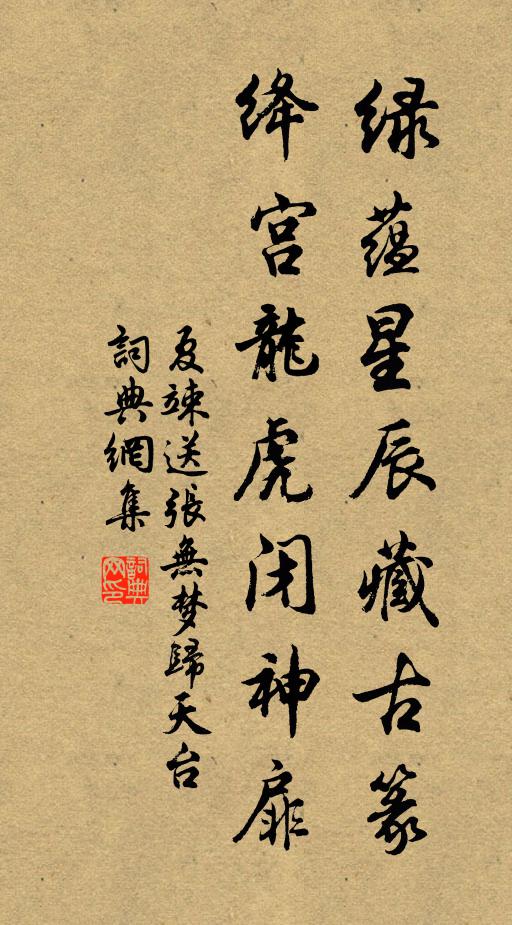 绿蕴星辰藏古篆
绛宫龍虎闭神扉
夏竦送張無梦歸天台
詞典網集
詞典網印